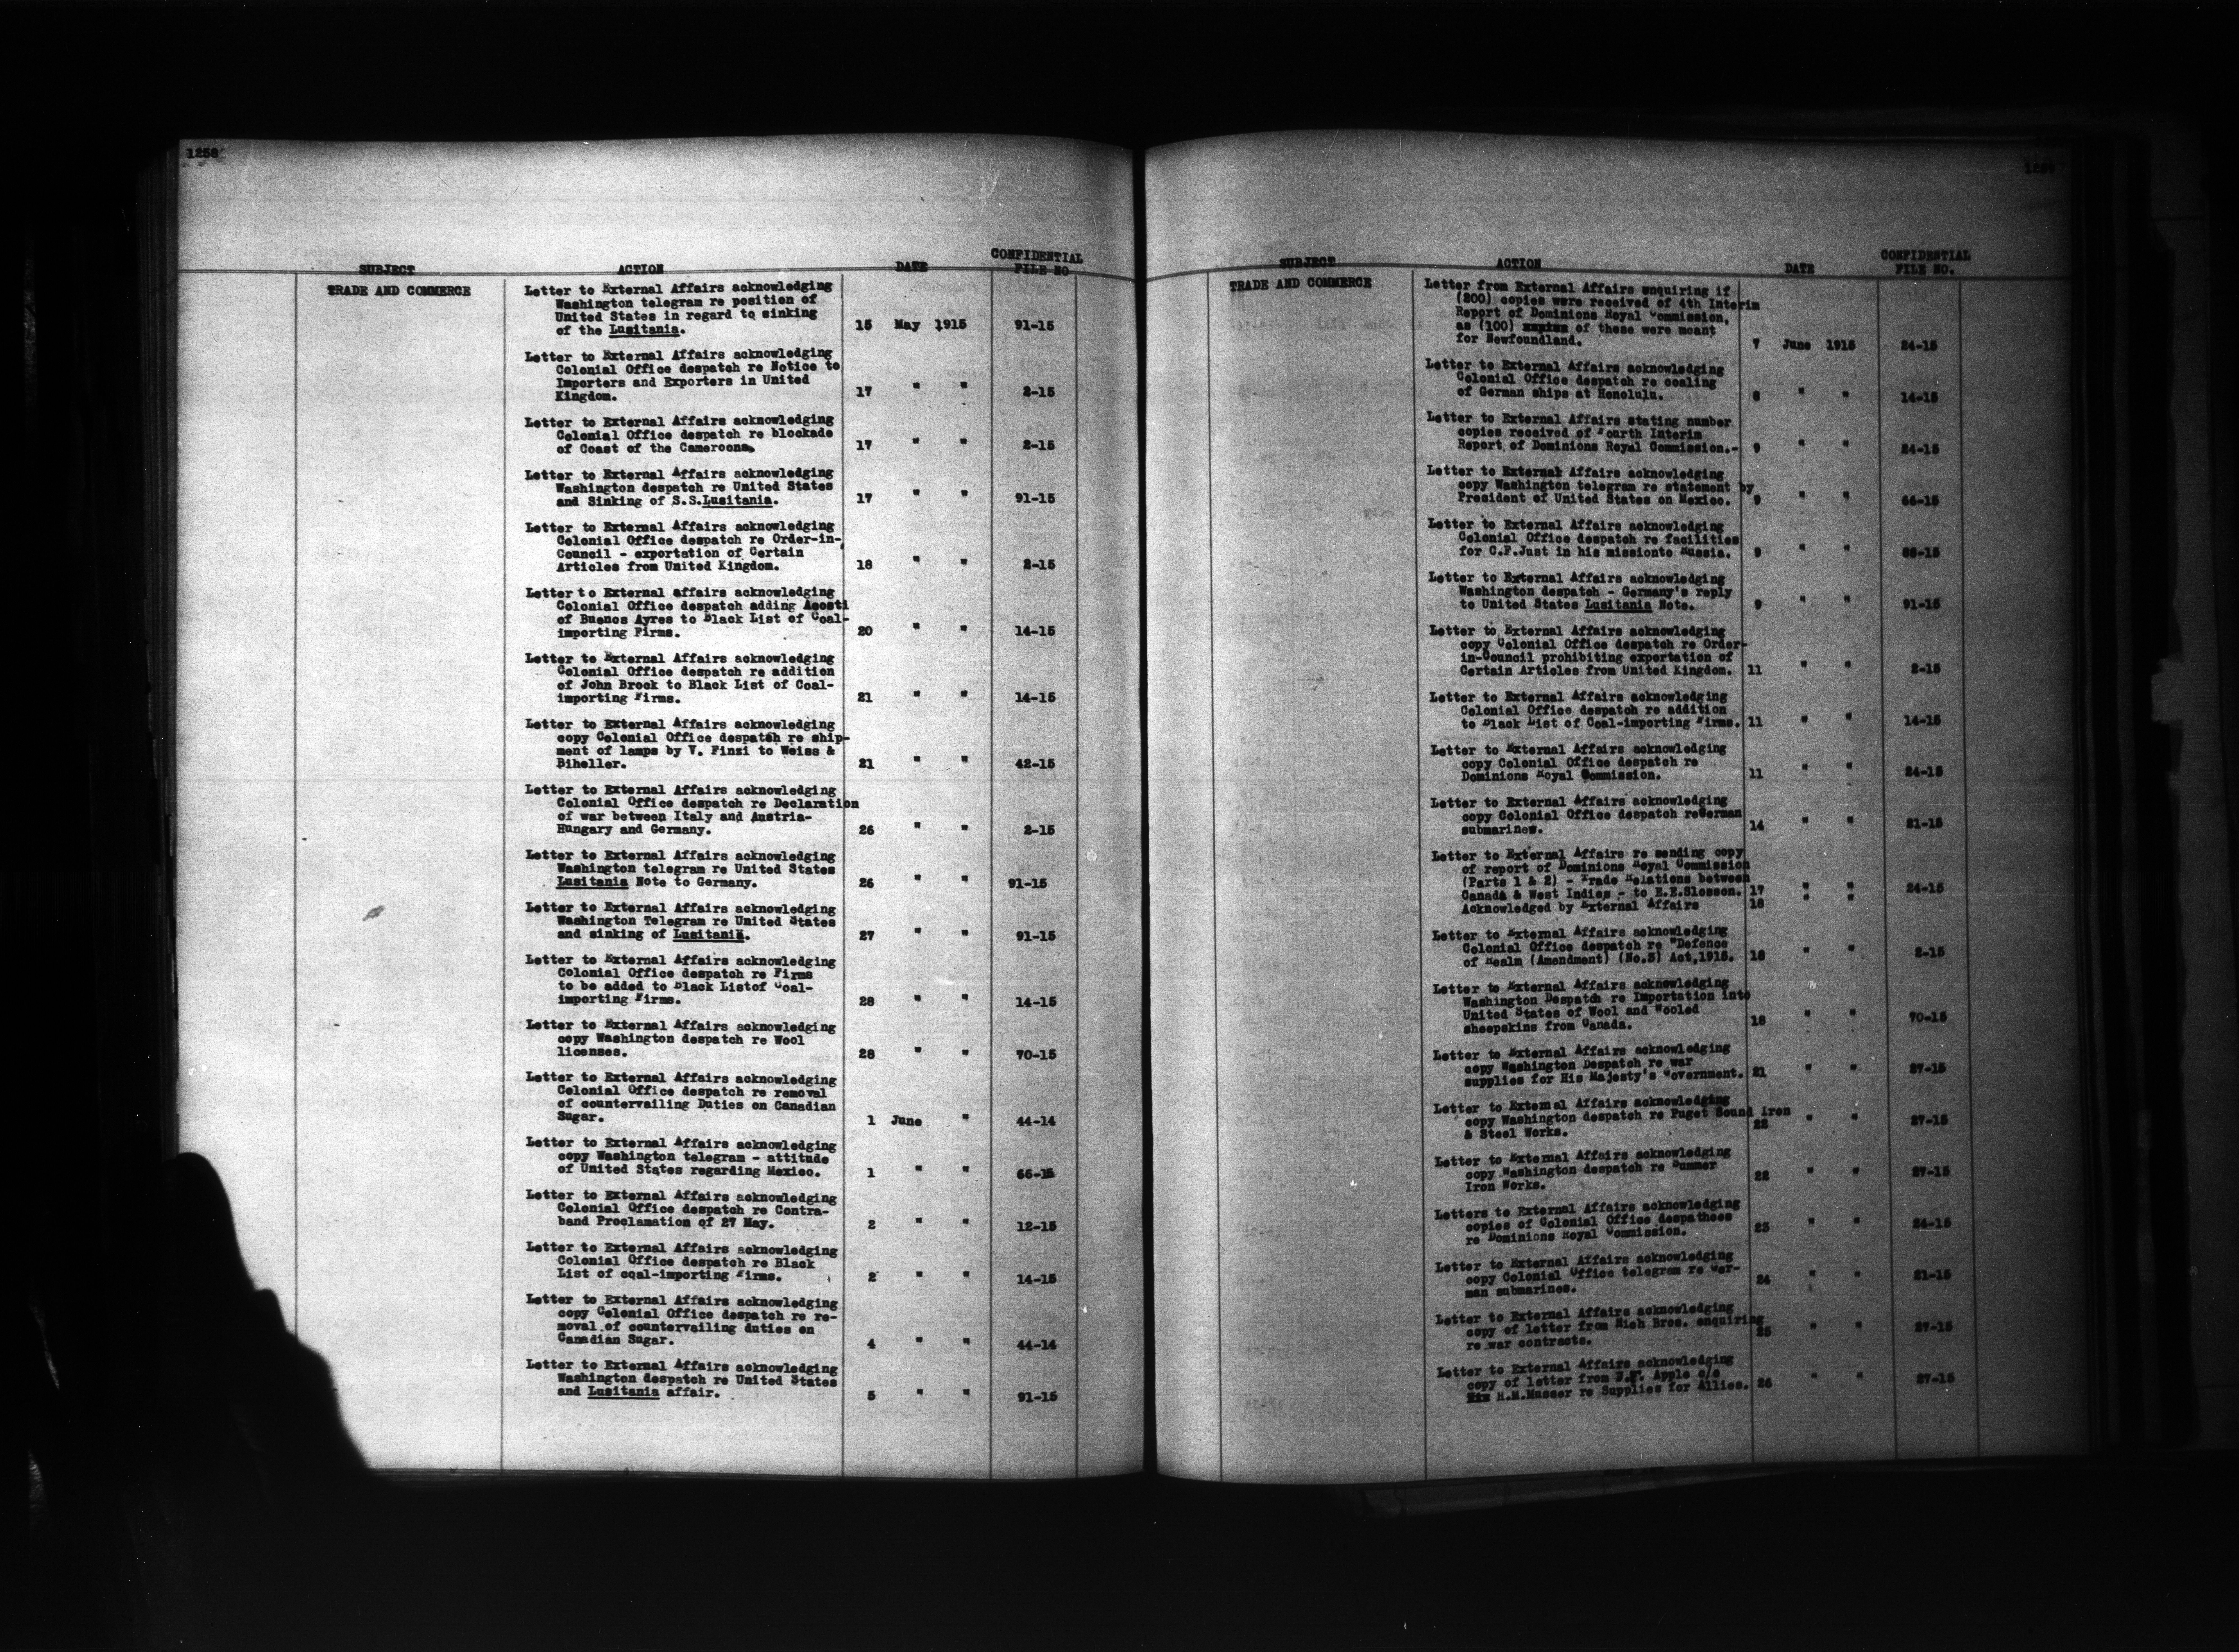 1258
SUBJECT ACTION DATE CONFIDENTIAL FILE NO
TRADE AND COMMERCE
Letter to External Affairs acknowledging
Washington telegram re position of
United States in regard to sinking
of the Lusitania. 15 May 1915 91-15
Letter to External Affairs acknowledging
Colonial Office despatch re Notice to
Importers and Exporters in United
Kingdom. 17 " " 2-15
Letter to External Affairs acknowledging
Colonial Office despatch re blockade
of Coast of the Cameroons. 17 " " 2-15
Letter to External Affairs acknowledging
Washington despatch re United States
and Sinking of S.S.Lusitania. 17 " " 91-15
Letter to External Affairs acknowledging
Colonial Office despatch re Order-in-
Council - exportation of Certain
Articles from United Kingdom. 18 " " 2-15
Letter to External affairs acknowledging
Colonial Office despatch adding Agosti
of Buenos Ayres to Black List of Coal-
importing Firms. 20 " " 14-15
Letter to External Affairs acknowledging
Colonial Office despatch re addition
of John Brock to Black List of Coal-
importing Firms. 21 " " 14-15
Letter to External Affairs acknowledging
copy Colonial Office despatch re ship-
ment of lamps by V. Finzi to Weiss &
Biheller. 21 " " 42-15
Letter to External Affairs acknowledging
Colonial Office despatch re Declaration
of war between Italy and Austria-
Hungary and Germany. 26 " " 2-15
Letter to External Affairs acknowledging
Washington telegram re United States
Lusitania Note to Germany. 26 " " 91-15
Letter to External Affairs acknowledging
Washington Telegram re United States
and sinking of Lusitania. 27 " " 91-15
Letter to External Affairs acknowledging
Colonial Office despatch re Firms
to be added to Black Listof Coal-
importing Firms. 28 " " 14-15
Letter to External Affairs acknowledging
copy Washington despatch re Wool
licenses. 28 " " 70-15
Letter to External Affairs acknowledging
Colonial Office despatch re removal
of countervailing Duties on Canadian
Sugar. 1 June " 44-14
Letter to External Affairs acknowledging
copy Washington telegram - attitude
of United States regarding Mexico. 1 " " 66-15
Letter to External Affairs acknowledging
Colonial Office despatch re Contra-
band Proclamation of 27 May. 2 " " 12-15
Letter to External Affairs acknowledging
Colonial Office despatch re Black
List of coal-importing Firms. 2 " " 14-15
Letter to External Affairs acknowledging
copy Colonial Office despatch re re-
moval of countervailing duties on
Canadian Sugar. 4 " " 44-14
Letter to External Affairs acknowledging
Washington despatch re United States
and Lusitania affair. 5 " " 91-15
1259
SUBJECT ACTION DATE CONFIDENTIAL FILE NO.
TRADE AND COMMERCE
Letter from External Affairs enquiring if
(200) copies were received of 4th Interim
Report of Dominions Royal Commission,
as (100) of these were meant
for Newfoundland. 7 June 1915 24-15
Letter to External Affairs acknowledging
Colonial Office despatch re coaling
of German ships at Honolulu. 8 " " 14-15
Letter to External Affairs stating number
copies received of Fourth Interim
Report of Dominions Royal Commission.- 9 " " 24-15
Letter to External Affairs acknowledging
copy Washington telegram re statement by
President of United States on Mexico. 9 " " 66-15
Letter to External Affairs acknowledging
Colonial Office despatch re facilities
for C.F.Just in his missionto Russia. 9 " " 88-15
Letter to External Affairs acknowledging
Washington despatch - Germany's reply
to United States Lusitania Note. 9 " " 91-15
Letter to External Affairs acknowledging
copy Colonial Office despatch re Order-
in-Council prohibiting exportation of
Certain Articles from United Kingdom. 11 " " 2-15
Letter to External Affairs acknowledging
Colonial Office despatch re addition
to Black List of Coal-importing Firms. 11 " " 14-15
Letter to External Affairs acknowledging
copy Colonial Office despatch re
Dominions Royal Commission. 11 " " 24-15
Letter to External Affairs acknowledging
copy Colonial Office despatch reGerman
submarines. 14 " " 21-15
Letter to External Affairs re sending copy
of report of Dominions Royal Commission
(Parts 1 & 2) - Trade Relations between
Canada & West Indies - to E.E.Slosson. 17 " " 24-15
Acknowledged by External Affairs 18 " "
Letter to External Affairs acknowledging
Colonial Office despatch re "Defence
of Realm (Amendment) (No.3) Act,1915. 18 " " 2-15
Letter to External Affairs acknowledging
Washington Despatch re Importation into
United States of Wool and Wooled
sheepskins from Canada. 18 " " 70-15
Letter to External Affairs acknowledging
copy Washington Despatch re war
supplies for His Majesty's Government. 21 " " 27-15
Letter to External Affairs acknowledging
copy Washington despatch re Puget Sound Iron
& Steel Works. 22 " " 27-15
Letter to External Affairs acknowledging
copy Washington despatch re Summer
Iron Works. 22 " " 27-15
Letters to External Affairs acknowledging
copies of Colonial Office despathces
re Dominions Royal Commission. 23 " " 24-15
Letter to External Affairs acknowledging
copy Colonial Office telegram re Ger-
man submarines. 24 " " 21-15
Letter to External Affairs acknowledging
copy of letter from Rich Bros. enquiring
re war contracts. 25 " " 27-15
Letter to External Affairs acknowledging
copy of letter from Apple c/o
H.M.Musser re Supplies for Allies. 26 " " 27-15